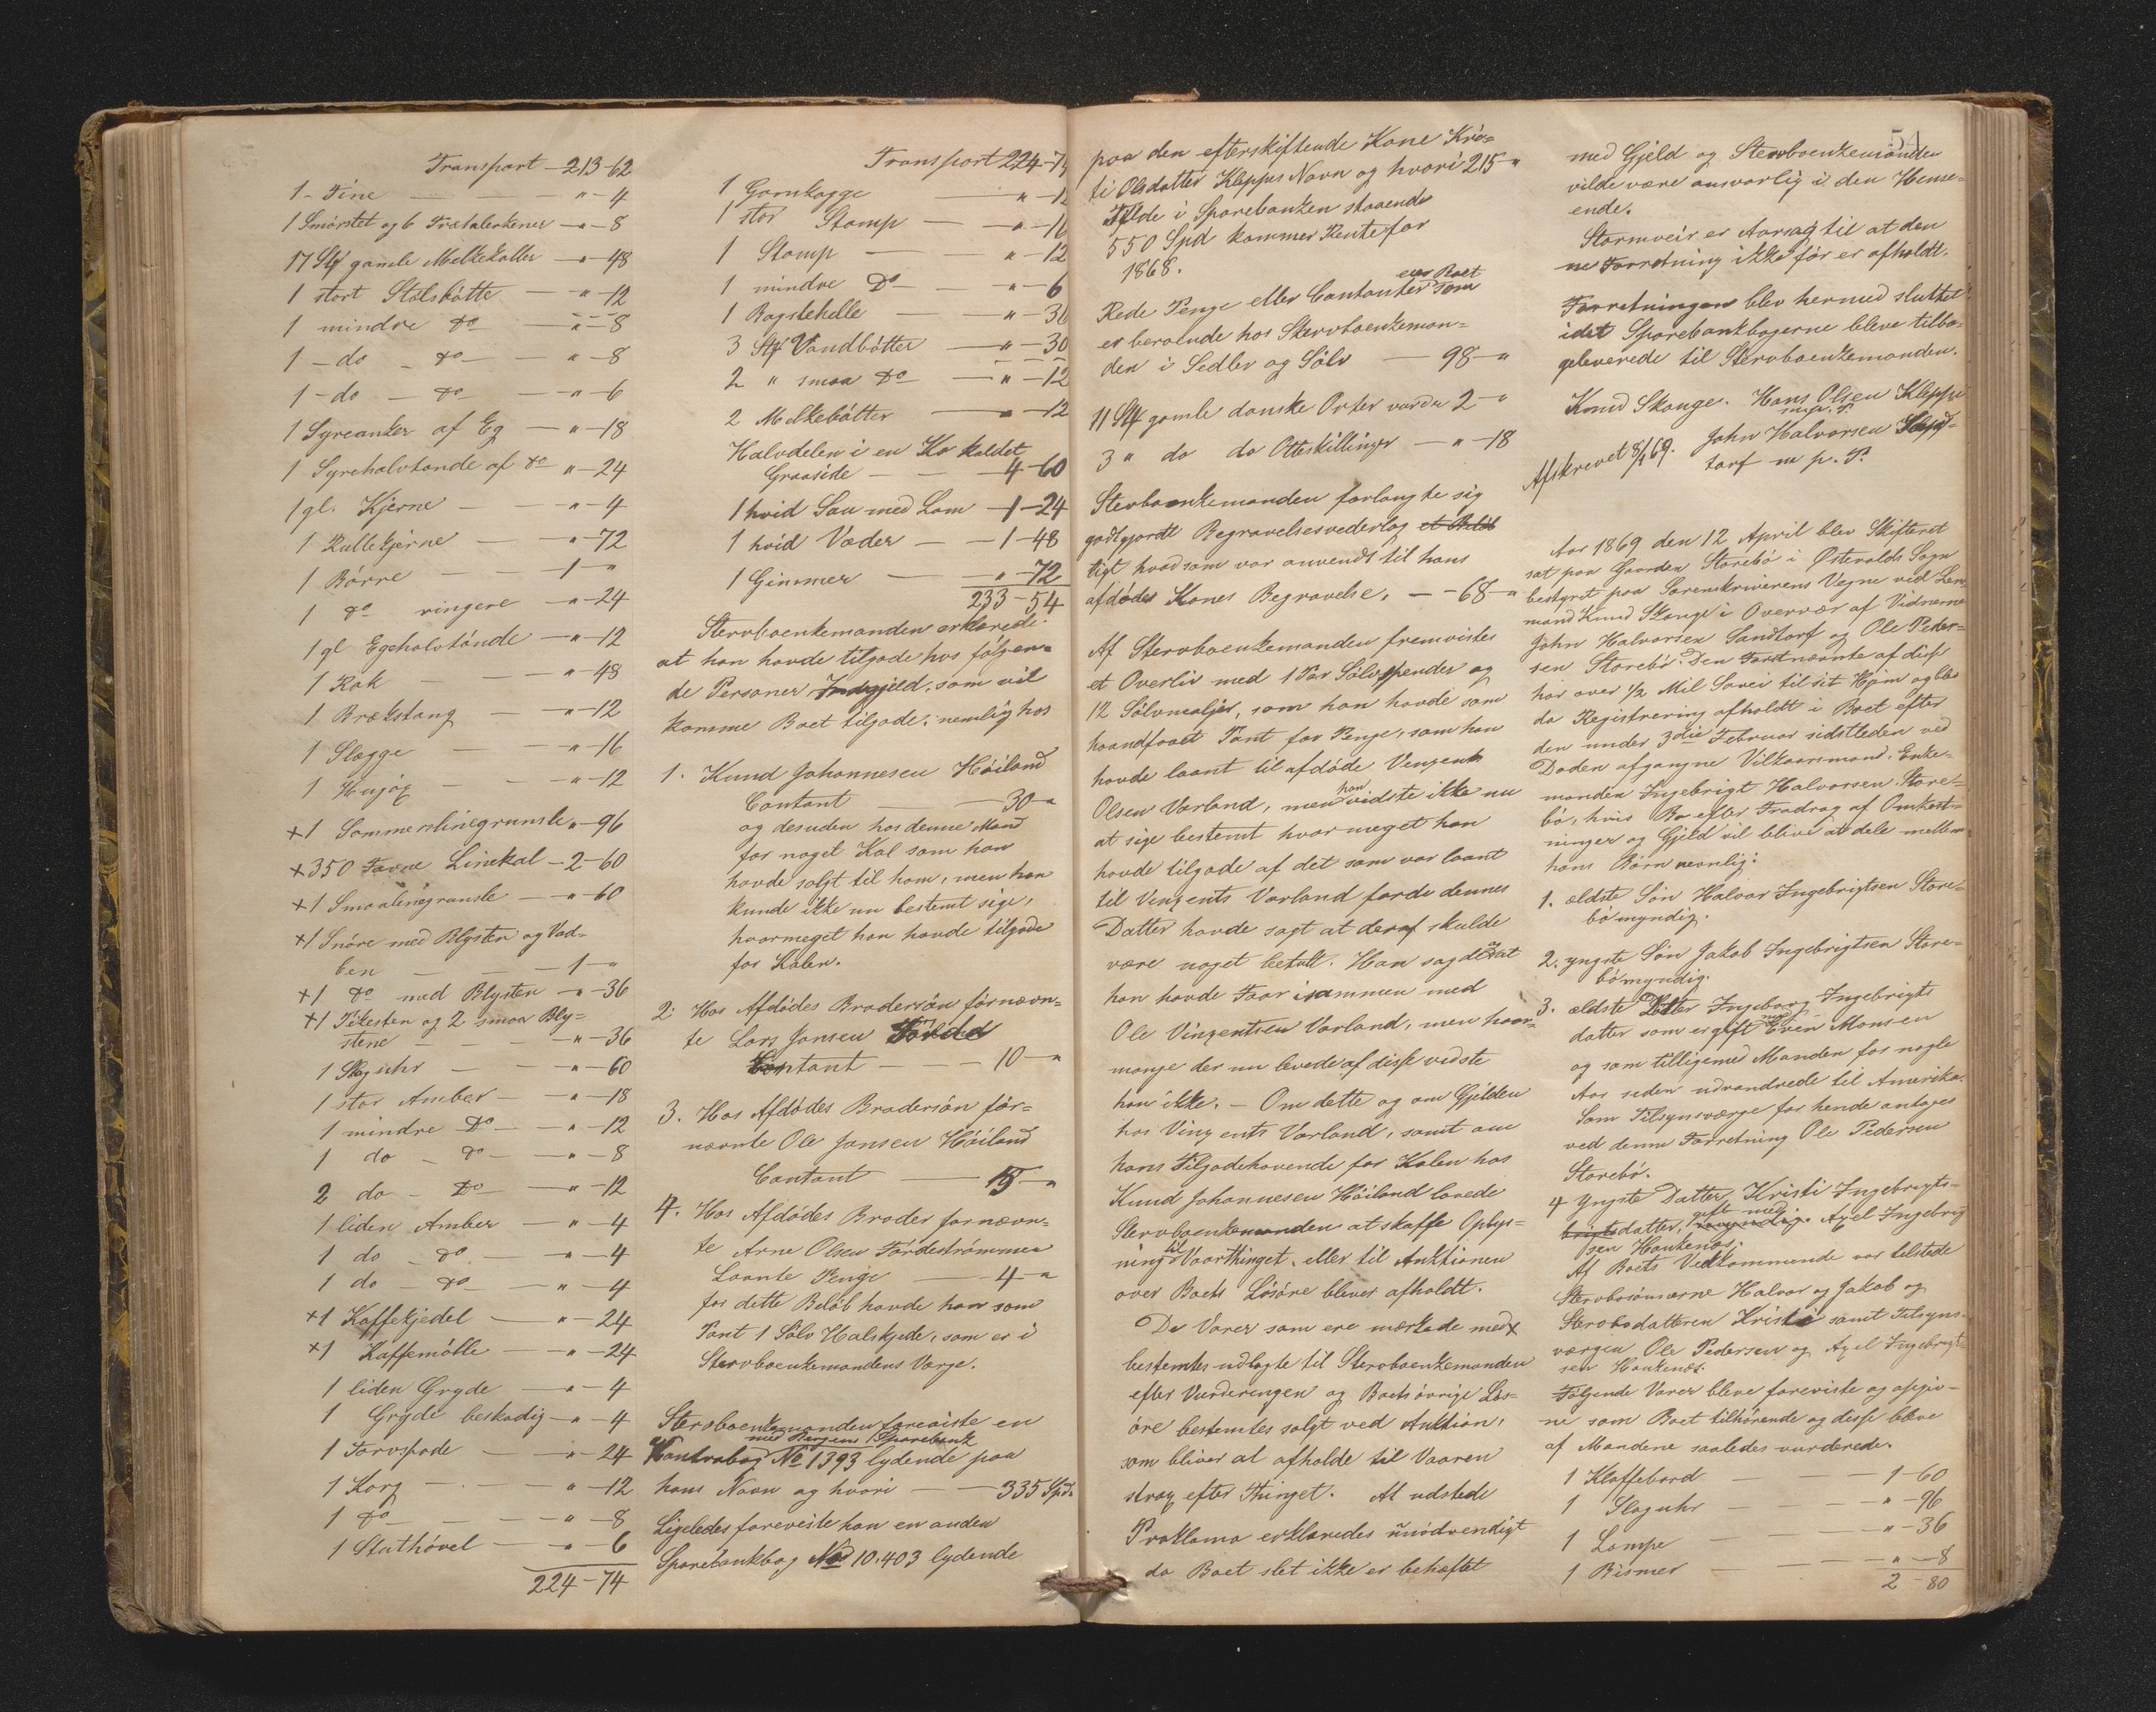 Transport - 213-62
1 - Tine — " - 4
1 Smörstet og 6 Trætalerkener — " - 8
17 Stk gamle Melkekoller — " - 48
1 stort Stölsbötte — " - 12
1 mindre do — " - 8
1 - do - do — " - 8
1 - do - do — " - 6
1 Syreanker af Eg — " - 18
1 Syrehalvtønde af do " - 24
1 gl. Kjerne — " - 4
1 Rullekjerne — " - 72
1 Börre — 1 - "
1 do ringere — " - 24
1 gl Egehalvtönde — " - 12
1 Rok — " - 48
1 Brækstang — " - 12
1 Slægge — " - 16
1 — " - 12
+1 Sommerslinegrunsle " - 96
+350 Favne Linekal - 2 - 60
+1 Smaalinegrunsle — " - 60
+1 Snöre med Blysten og Vad-
ben — 1 - "
+1 do med Blysten — " - 36
+1 Pikesten og 2 smaa Bly=
stene — " - 36
1 Slaguhr — " - 60
1 stor Amber — " - 18
1 mindre do — " - 12
1 do - do — " - 8
2 do - do — " - 12
1 liden Amber — " - 4
1 do - do — " - 4
1 do - do — " - 4
+1 Kaffekjedel — " - 24
+1 Kaffemölle — " - 24
1 liden Gryde — " - 4
1 Gryde beskadig — " - 4
1 Torvspade — " - 24
1 Korg — " - 12
1 do — " - 8
1 Stuthövel — " - 6
224 - 74
Transport 224 - 74
1 Garnkagge — " - 12
1 stor Stamp — " - 16
1 Stamp — " - 12
1 mindre do — " - 6
1 Bagstehelle — " - 36
3 Stk Vandbötter — " - 30
2 " smaa do — " - 12
2 Melkebötter — " - 12
Halvdelen i en Ko kaldet
Graaside — 4 - 60
1 hvid Sau med Lam - 1 - 24
1 hvid Væder — 1 - 48
1 Gimmer — " - 72
233 - 54
Stervboenkemanden erklærede
at han havde tilgode hos følgen=
de Personer Indgjeld, som vil
komme Boet tilgode, nemlig hos
1. Knud Johannesen Höiland
Contant — 30 - "
og desuden hos denne Mand
for noget Kal som han
havde solgt til ham, men han
kunde ikke nu bestemt sige,
hvormeget han havde tilgode
for Kalen.
2. Hos Afdödes Brodersön förnævn=
te Lars Jansen Förde
Contant — 10 - "
3. Hos Afdödes Brodersön för=
nævnte Ole Jansen Höiland
Contant — 15 - "
4. Hos Afdödes Broder fornævn=
te Arne Olsen Fördeströmmen
Laante Penge — 4 - "
for dette Belöb havde han som
Pant 1 Sölv Halskjede, som er i
Stervboenkemandens Værge.
Stervboenkemanden foreviste en
med Bergens Sparebank
Contrabog No 1393 lydende paa
hans Navn og hvori — 335 Spd.
Ligeledes foreviste han en anden
Sparebankbog No 10.403 lydende
paa den efterskiftende Kone Kri=
sti Olsdatter Kleppes Navn og hvori 215 - "
Tillde i Sparebanken staaende
550 Spd kommer Rente for
1868.
Rede Penge eller Contanter som
eier Boet
er beroende hos Stervboenkeman=
den i Sedler og Sölv — 98 - "
11 Stk gamle danske Orter værdi 2 - "
3 " do do Otteskillinger — " - 18
Stervboenkemanden forlangte sig
godtgjordt Begravelsesvederlag et Beløb
ligt hvad som var anvendt til hans
afdödes Kones Begravelse. — 68 - "
Af Stervboenkemanden fremvistes
et Overliv med 1 Par Sölvspender og
12 Sölvmaljer, som han havde som
haandfaaet Pant for Penge, som han
havde laant til afdöde Vinzents
Olsen Varland, men han vidste ikke nu
at sige bestemt hvor meget han
havde tilgode af det som var laant
til Vinzents Varland fordi dennes
Datter havde sagt at deraf skulde
være noget betalt. Han sagde at
han havde Faar isammen med
Ole Vinzentsen Varland, men hvor=
mange der nu levede af disse vidste
han ikke. - Om dette og om Gjelden
hos Vinzents Varland, samt om
hans Tilgodehavende for Kalen hos
Knud Johannesen Höiland lovede
Stervboenkemanden at skaffe Oplys=
ning til Vaarthinget, eller til Auktionen
over Boets Lösöre bliver afholdt.
De Varer som ere mærkede med x
bestemtes udlagte til Stervboenkemanden
efter Vurderingen og Boets övrige Lös=
öre bestemtes solgt ved Auktion,
som bliver at afholde til Vaaren
strax efter Thinget. At udstede
Proklama erklæredes unödvendigt
da Boet slet ikke er behæftet
54
med Gjeld og Stervboenkemanden
vilde være ansvarlig i den Hense=
ende.
Stormveir er Aarsag til at den
ne Forretning ikke för er afholdt.
Forretningen blev hermed sluttet
idet Sparebankbøgerne bleve tilba=
geleverede til Stervboenkemanden.
Knud Skauge. Hans Olsen Kleppe
m. p. P.
Afskrevet 8/4 69. John Halvorsen Sand=
torf m p. P.
Aar 1869 den 12 April blev Skifteret
sat paa Gaarden Storebö i Østevolds Sogn
bestyret paa Sorenskriverens Vegne ved Len
mand Knud Skauge i Overvær af Vidnerne
John Halvorsen Sandtorf og Ole Peder=
sen Storebö. Den Førstnævnte af disse
har over 1/2 Mil Søvei til sit Hjem og blev
da Registrering afholdt i Boet efter
den under 3die Februar sidstleden ved
Døden afgangne Vilkaarsmand. Enke=
manden Ingebrigt Halvorsen Store=
bö, hvis Bo efter Fradrag af Omkost=
ninger og Gjeld vil blive at dele mellem
hans Børn nemlig:
1. ældste Sön Halvor Ingebrigtsen Store=
bö myndig.
2. yngste Sön Jakob Ingebrigtsen Store=
bö myndig.
3. ældste Datter Ingeborg Ingebrigts
datter som er gift med Even Monsen
og som tilligemed Manden for nogle
Aar siden udvandrede til Amerika.
Som Tilsynsværge for hende antoges
ved denne Forretning Ole Pedersen
Storebö.
4 Yngste Datter Kristi Ingebrigts=
brigtsdatter, myndig. gift med Axel Ingebrig
tsen Haukenæs.
Af Boets Vedkommende var tilstede
Stervbosönnerne Halvor og Jakob og
Stervbodatteren Kristi samt Tilsyns=
værgen Ole Pedersen og Axel Ingebrigt=
sen Haukenæs.
Følgende Varer bleve foreviste og opgiv=
ne som Boet tilhörende og disse bleve
af Mændene saaledes vurderede.
1 Klaffebord — 1 - 60
1 Slaguhr — " - 96
1 Lampe — " - 36
1 Bismer — " - 8
2 - 80